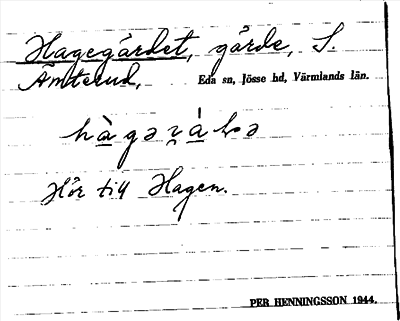 Hagegärdet, gärde, S.
Åmterud, Eda sn, Jösse hd, Värmlands län.
Hör till Hagen.
PER HENNINGSSON 1944.